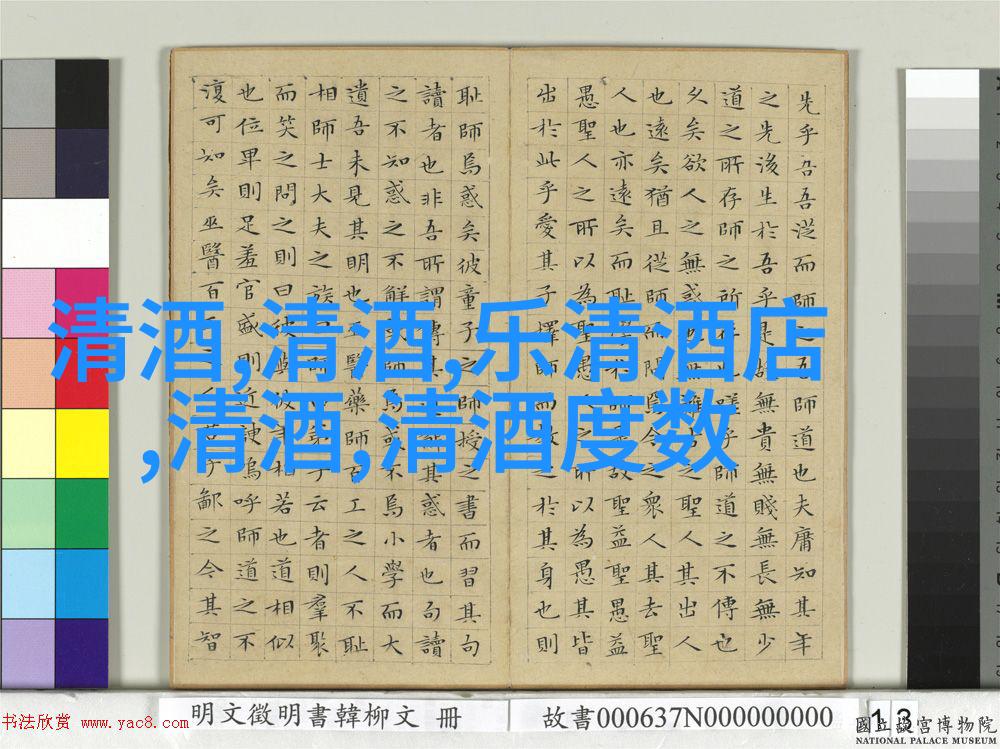 清酒,清酒,乐清酒店
,清酒,清酒度数
先乎吾吾從而師之吾師道也夫庸知其年
之先後生於吾乎是故無貴無賤無長無少
道之所存師之所存也嗟乎師道之不傳也
久矣欲人之無惑也難矣古之聖人其出人
也遠矣猶且從師而問焉今之衆人其去聖
人也亦遠矣而耻學於師是故聖益聖愚益
愚聖人之所以為聖愚人之所以為愚其皆
出於此乎愛其子擇師而教之於其身也則
耻師焉惑矣彼童子之師授之書而習其句
讀者也非吾所謂傳其道解其惑者也句讀
之不知惑之不解或師焉或不焉小學而大
遺吾未見其明也巫醫藥師百工之人不耻
相師士大夫之族曰師曰弟子云者則羣聚
而笑之問之則曰彼與彼年相若也道相似
也位卑則足羞官盛則近諛嗚呼師道之不
復可知矣巫醫百工之人君子鄙之今其智
明文徵明書韓柳文 冊
故書000637N000000000
13
书法欣赏 www.yac8.com
國立故宮博物院
NATIONAL PALACE MUSEUM